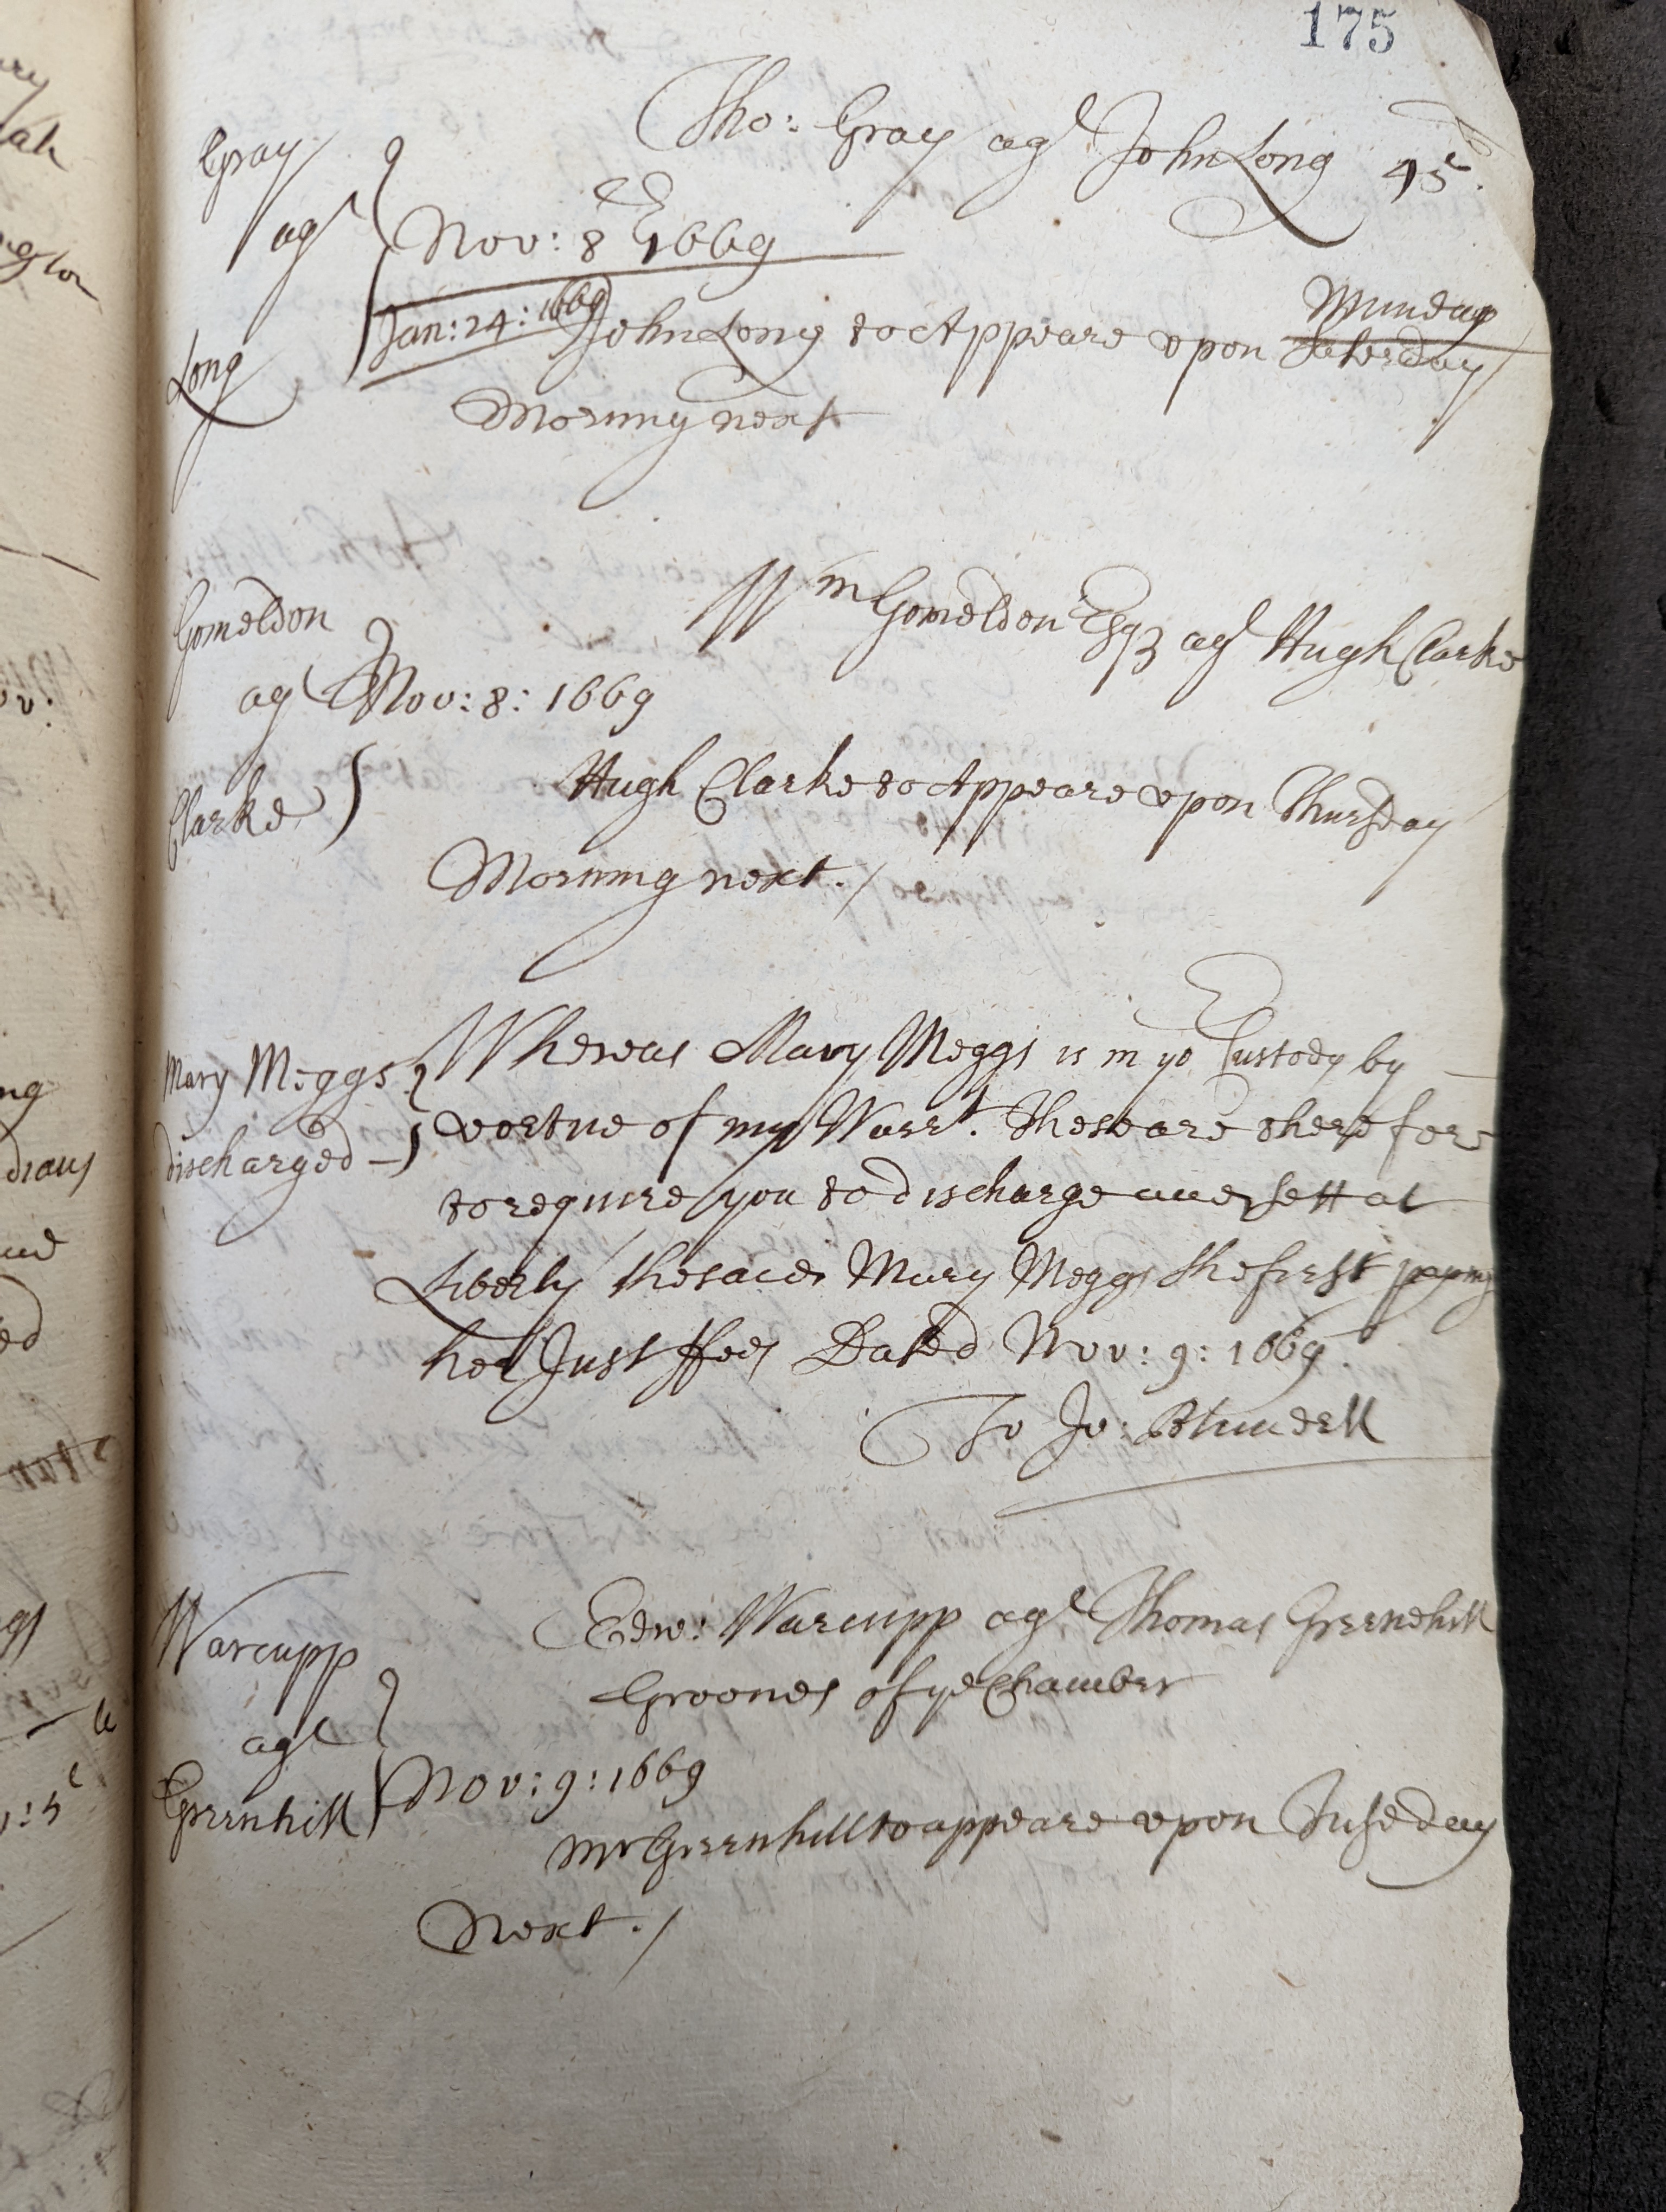 175
Tho: Gray agt John Long 45s.
Gray
agt
Long
Nov: 8 1669
Jan: 24: 1669
Munday
John Long to Appeare vpon Saterday
Morning next
Wm Gomeldon Esqz agt Hugh Clarke
Gomeldon
agt
Clarke
Nov: 8: 1669
Hugh Clarke to Appeare vpon Thursday
Morning next./
Mary Meggs
discharged
Whereas Mary Meggs is in yor Custody by
vertue of my Warrt. These are therefore
to require you to discharge and sett at
Liberty the said Mary Meggs she first paying
her Just ffees Dated Nov: 9: 1669.
To Jo: Blundell
Warcupp
agt
Greenhill
Edw: Warcupp agt Thomas Greenehill
Groomes of ye Chamber
Nov: 9: 1669
Mr Greenhill to appeare vpon Tuseday
Next./